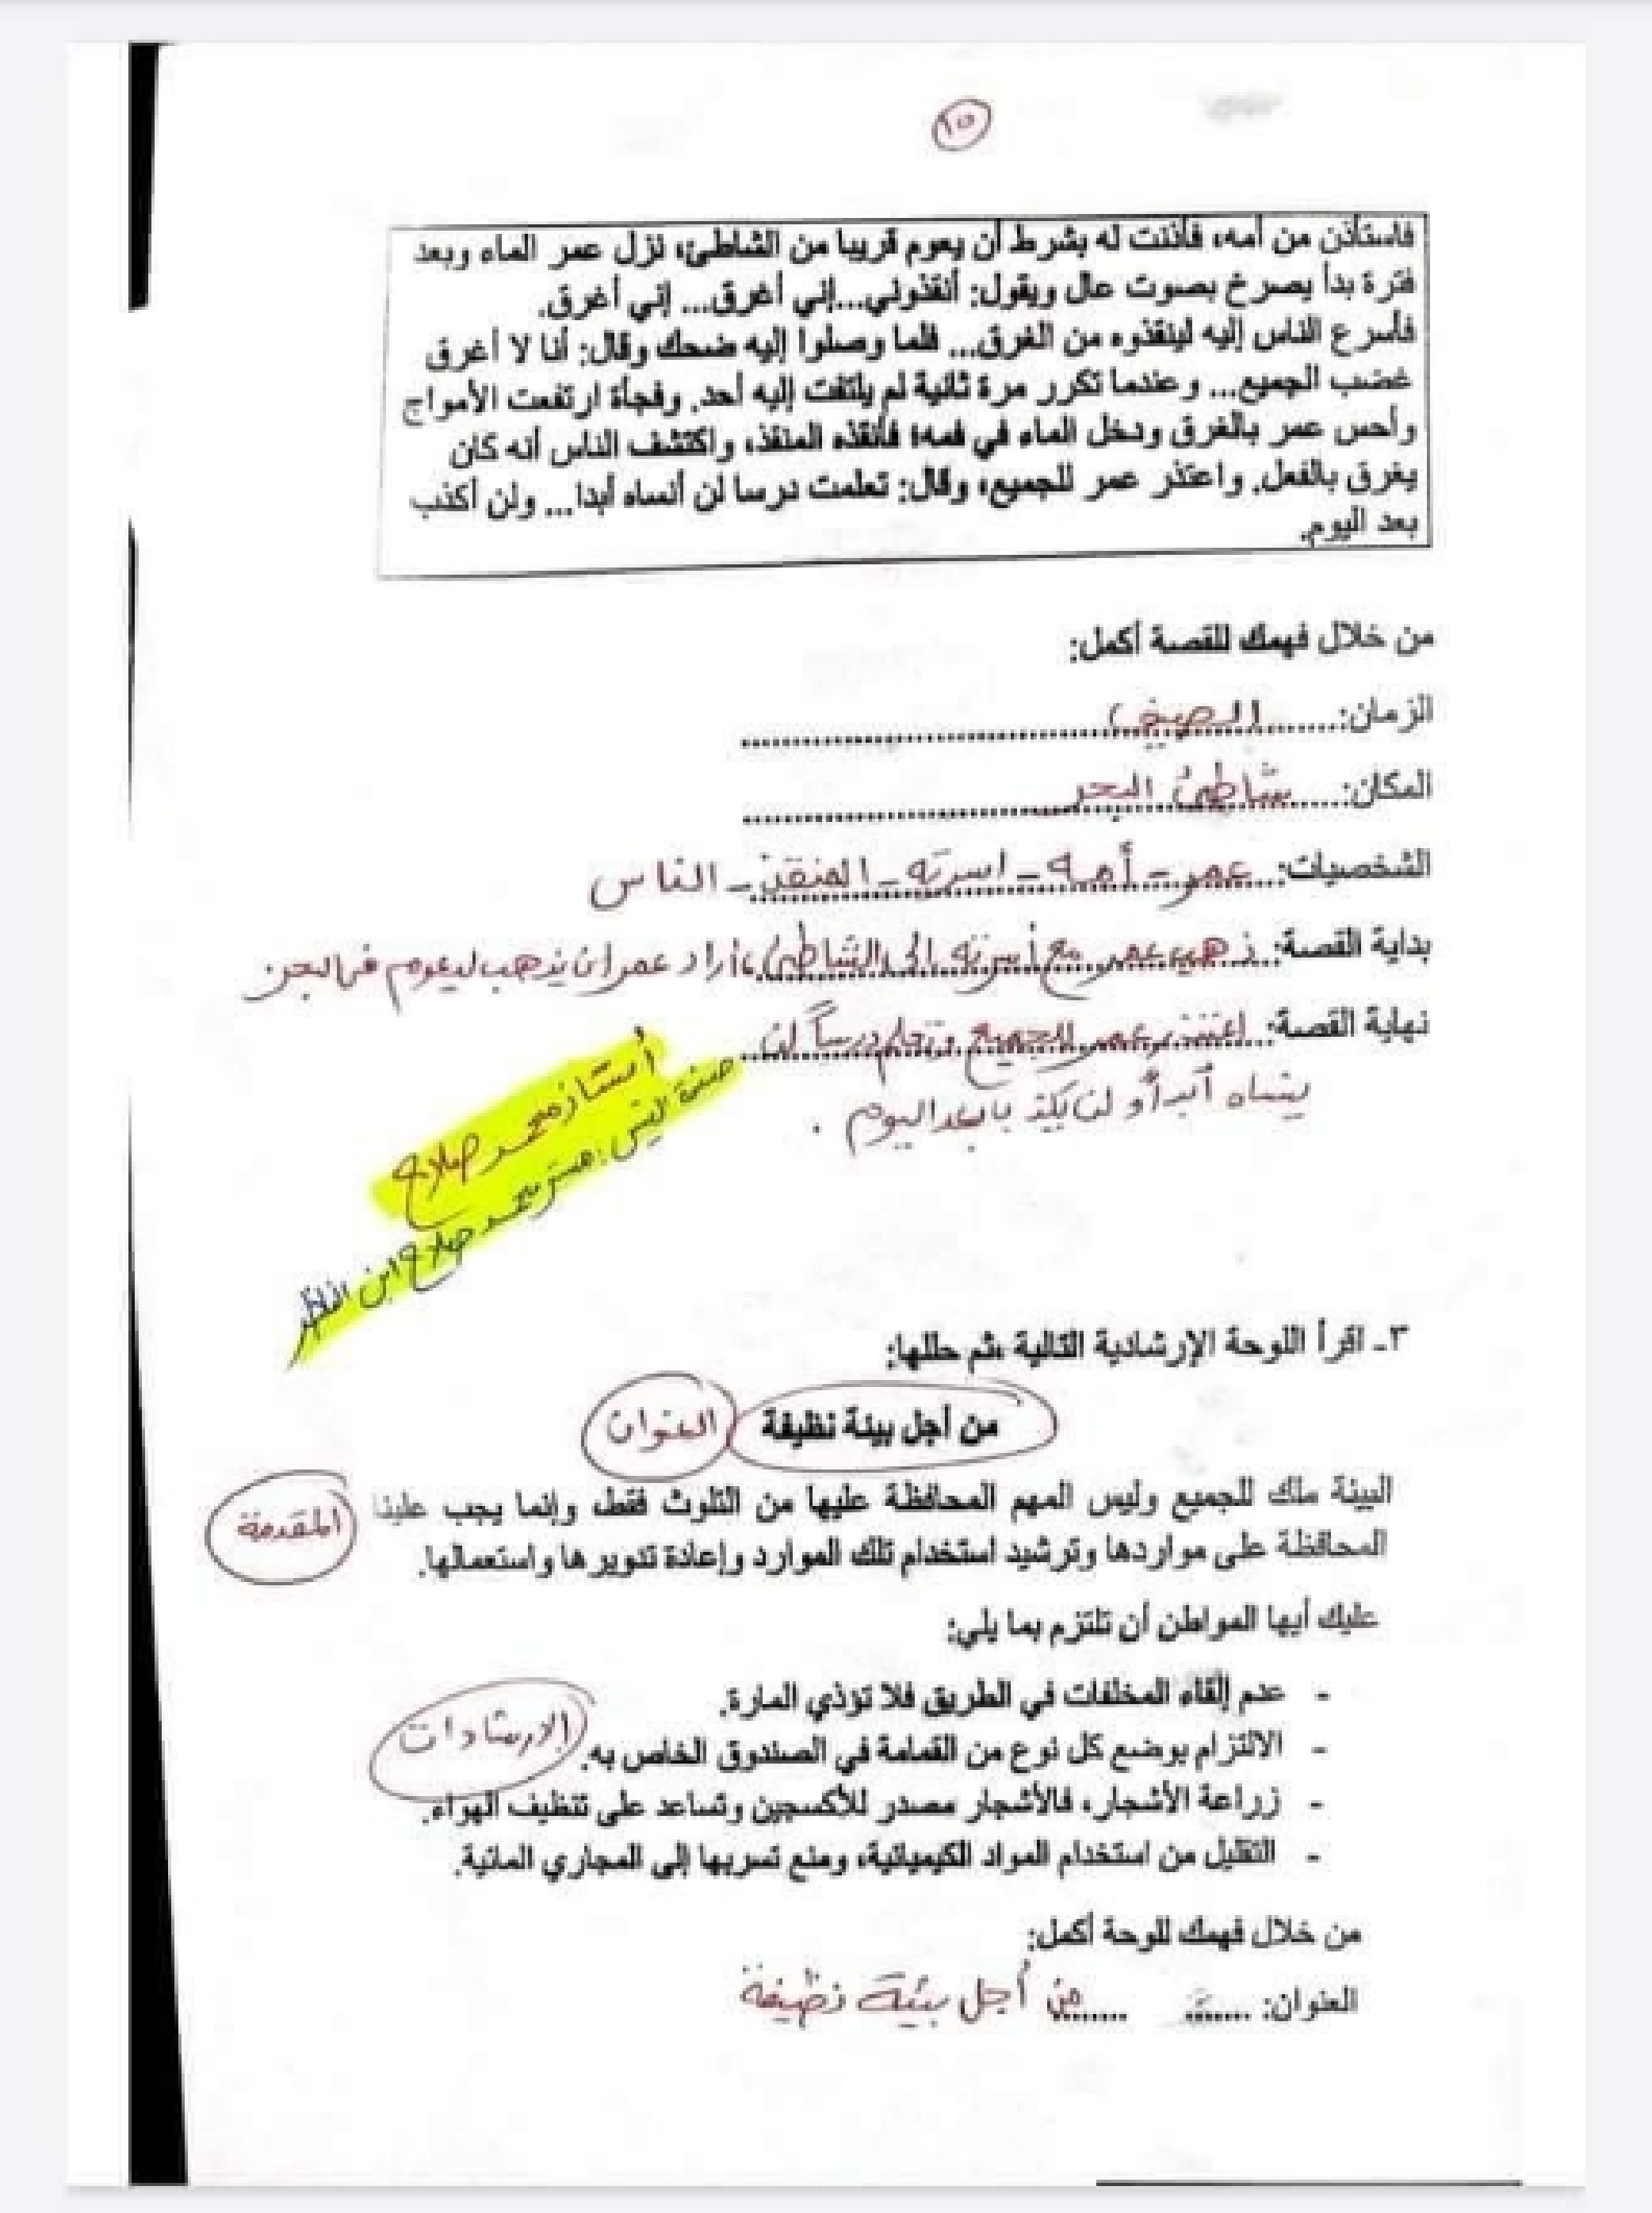 ١٥
فاستأذن من أمه، فأذنت له بشرط أن يعوم قريبا من الشاطئ، نزل عمر الماء وبعد
فترة بدأ يصرخ بصوت عال ويقول: أنقذوني...إني أغرق... إني أغرق.
فأسرع الناس إليه لينقذوه من الغرق... فلما وصلوا إليه ضحك وقال: أنا لا أغرق
غضب الجميع... وعندما تكرر مرة ثانية لم يلتفت إليه أحد. وفجأة ارتفعت الأمواج
وأحس عمر بالغرق ودخل الماء في فمه؛ فأنقذه المنقذ، واكتشف الناس أنه كان
يغرق بالفعل. واعتذر عمر للجميع، وقال: تعلمت درسا لن أنساه أبدا... ولن أكذب
بعد اليوم.
من خلال فهمك للقصة أكمل:
الزمان: الصيف
المكان: شاطئ البحر
الشخصيات: عمر - أمه - اسرته - المنقذ - الناس
بداية القصة: ذهب عمر مع أسرته إلى الشاطئ، أراد عمر ان يذهب ليعوم في البحر
نهاية القصة: اعتذر عمر للجميع وتعلم درساً لن
ينساه أبداً و لن يكذب بعد اليوم .
أستاذ محمد صلاح
صفحة الفيس: مستر محمد صلاح ابن الناظر
٣- اقرأ اللوحة الإرشادية التالية ،ثم حللها:
من أجل بيئة نظيفة العنوان
البيئة ملك للجميع وليس المهم المحافظة عليها من التلوث فقط، وإنما يجب علينا المقدمة
المحافظة على مواردها وترشيد استخدام تلك الموارد وإعادة تدويرها واستعمالها.
عليك أيها المواطن أن تلتزم بما يلي:
- عدم إلقاء المخلفات في الطريق فلا تؤذي المارة.
- الالتزام بوضع كل نوع من القمامة في الصندوق الخاص به. الارشادات
- زراعة الأشجار، فالأشجار مصدر للأكسجين وتساعد على تنظيف الهواء.
- التقليل من استخدام المواد الكيميائية، ومنع تسربها إلى المجاري المائية.
من خلال فهمك للوحة أكمل:
العنوان: من أجل بيئة نظيفة